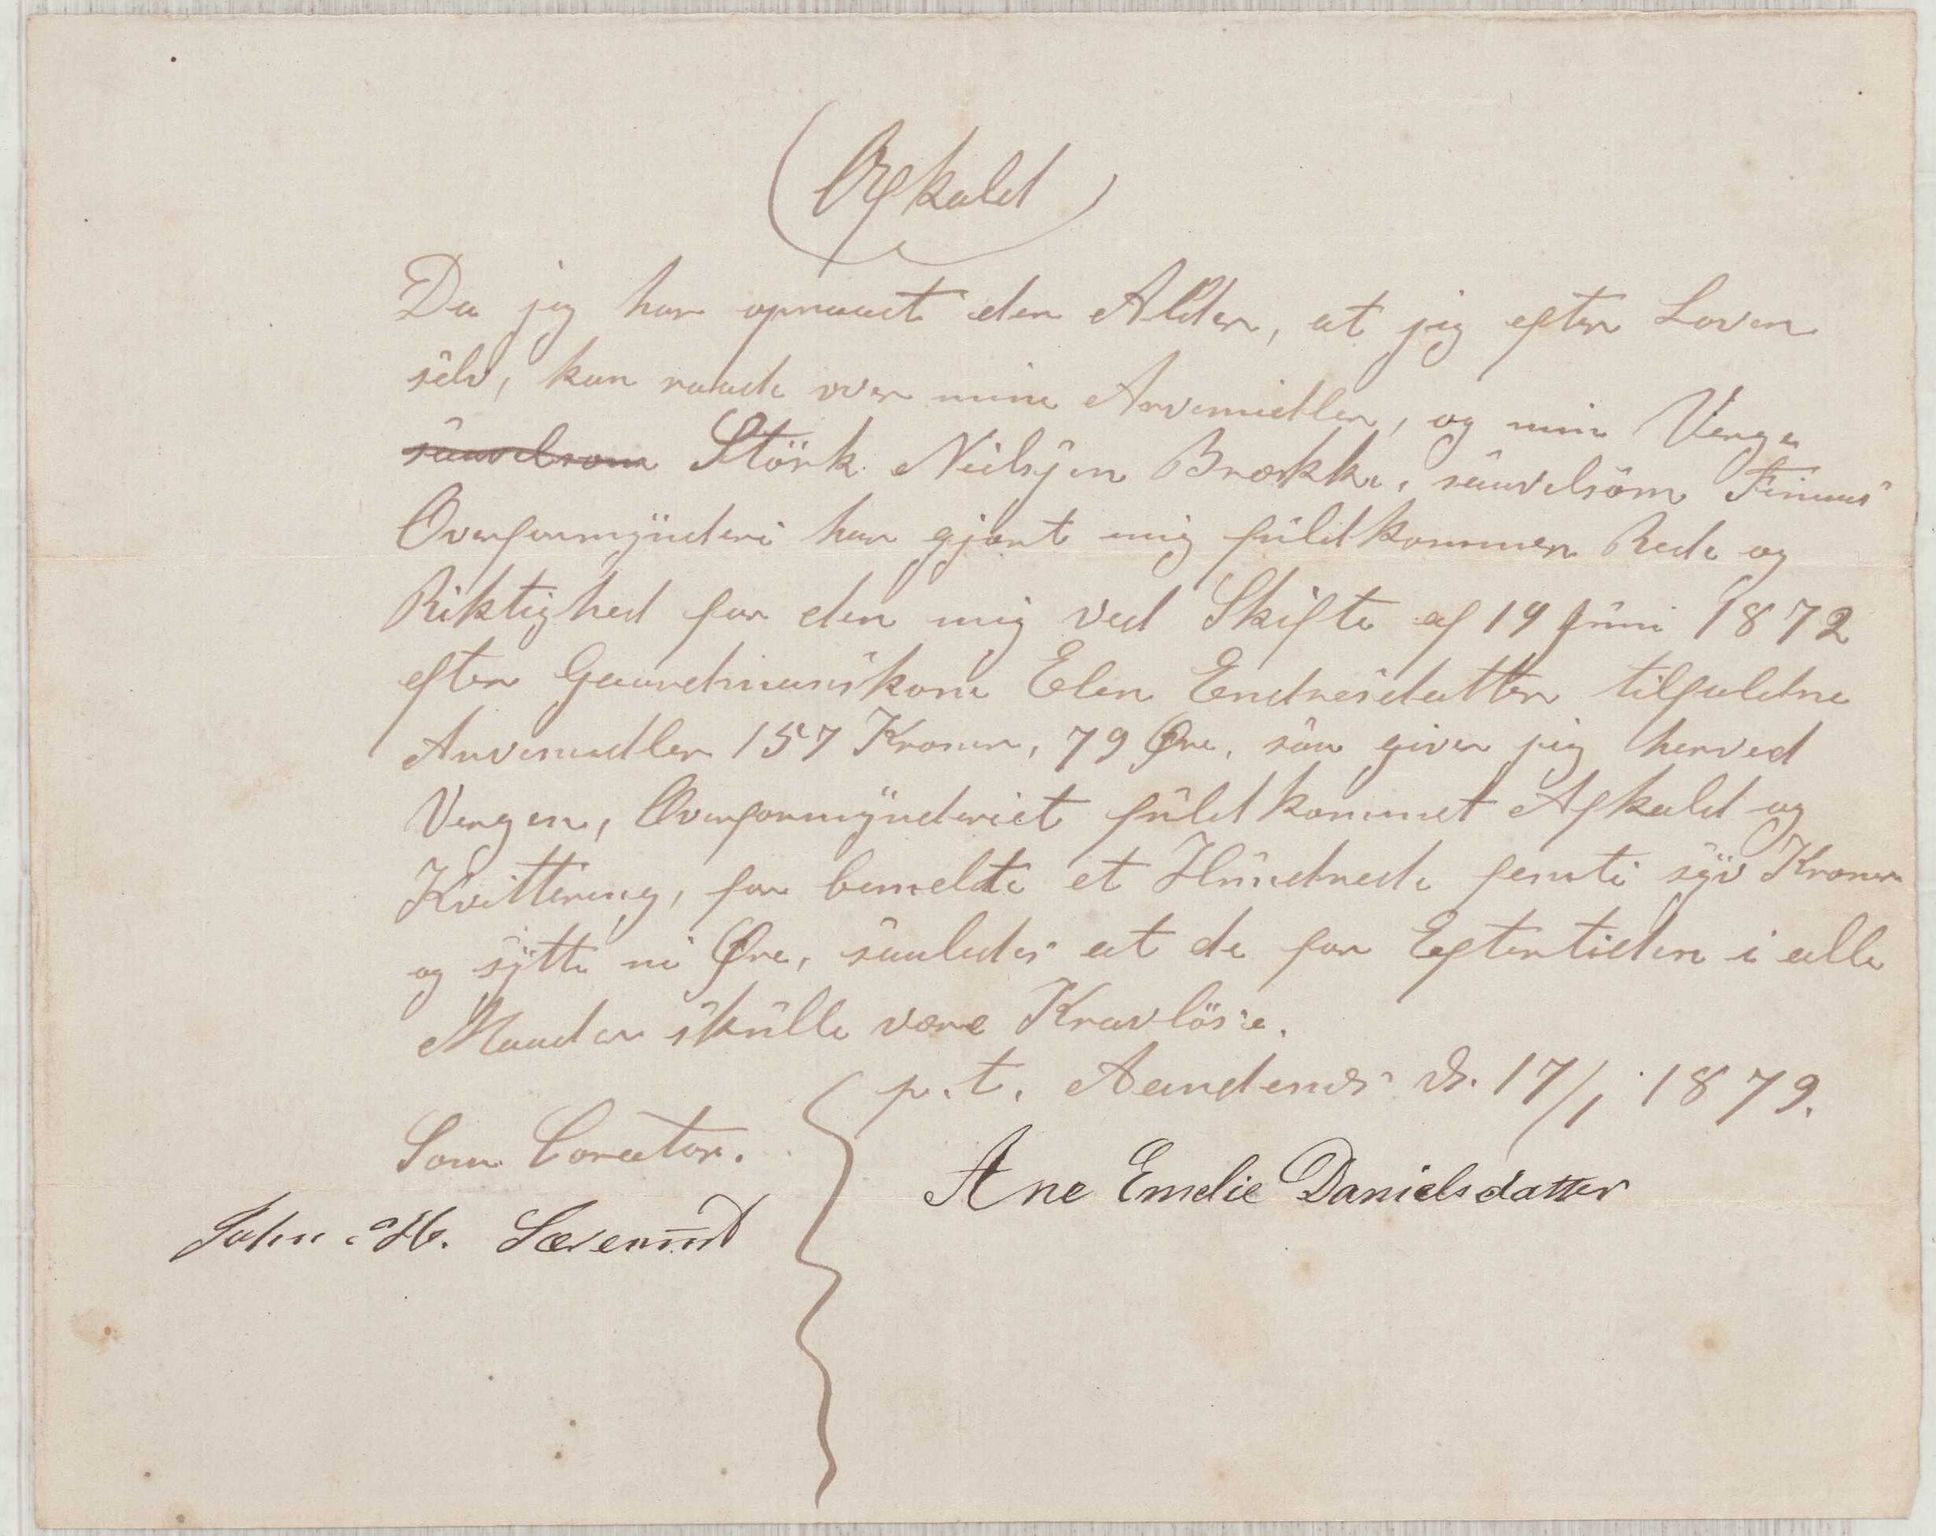 Afkald
Da jeg har opnaaet den Alder, at jeg efter Loven
selv, kan raade over mine Arvemidler, og min Verge
saavelsom Störk Neilsjen Brække, saavelsom Finnaas
Overformynderi har gjort mig fuldkommen Rede og
Riktighed for den mig ved Skifte af 19 Juni 1872
efter Gaardmanskone Elen Endresdatter tilfaldne
Arvemidler 157 Kroner, 79 Øre, saa giver jeg herved
Vergen, Overformynderiet fuldkommet Afkald og
Kvittering, for bemeldte et Hundrede femti syv Kroner
og sytti ni Øre, saaledes at de for Eftertiden i alle
Maader skulle være Kravlöse.
p.t. d. 17/1 1879.
Som Corator.
Ane Emelie Danielsdatter
John H.